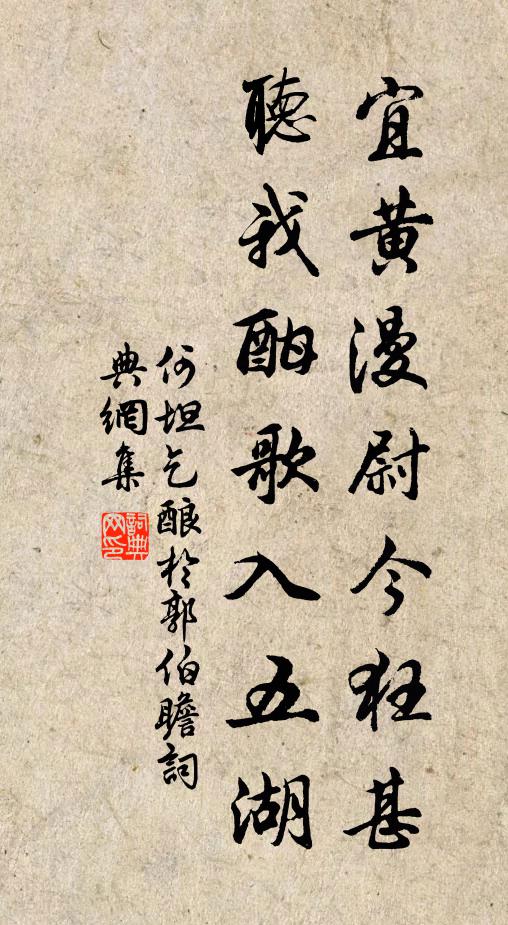 宜黄漫尉今狂甚
聽我酣歌入五湖
何坦乞酿於郭伯瞻詞
典網集
詞典网印